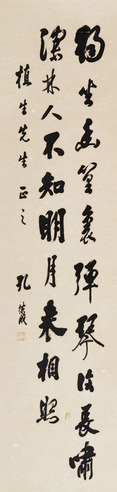 獨坐幽篁裏彈琴復長嘯
深林人不知明月來相照
植生先生 正之 孔德成